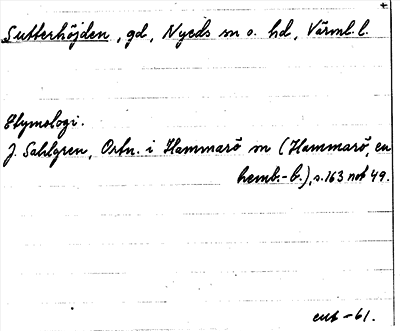 +
Sutterhöjden, gd, Nyeds sn o. hd, Värml. l.
Etymologi.
J. Sahlgren, Ortn. i Hammarö sn (Hammarö, en
hemb.-b.), s. 163 not 49.
cut -61.